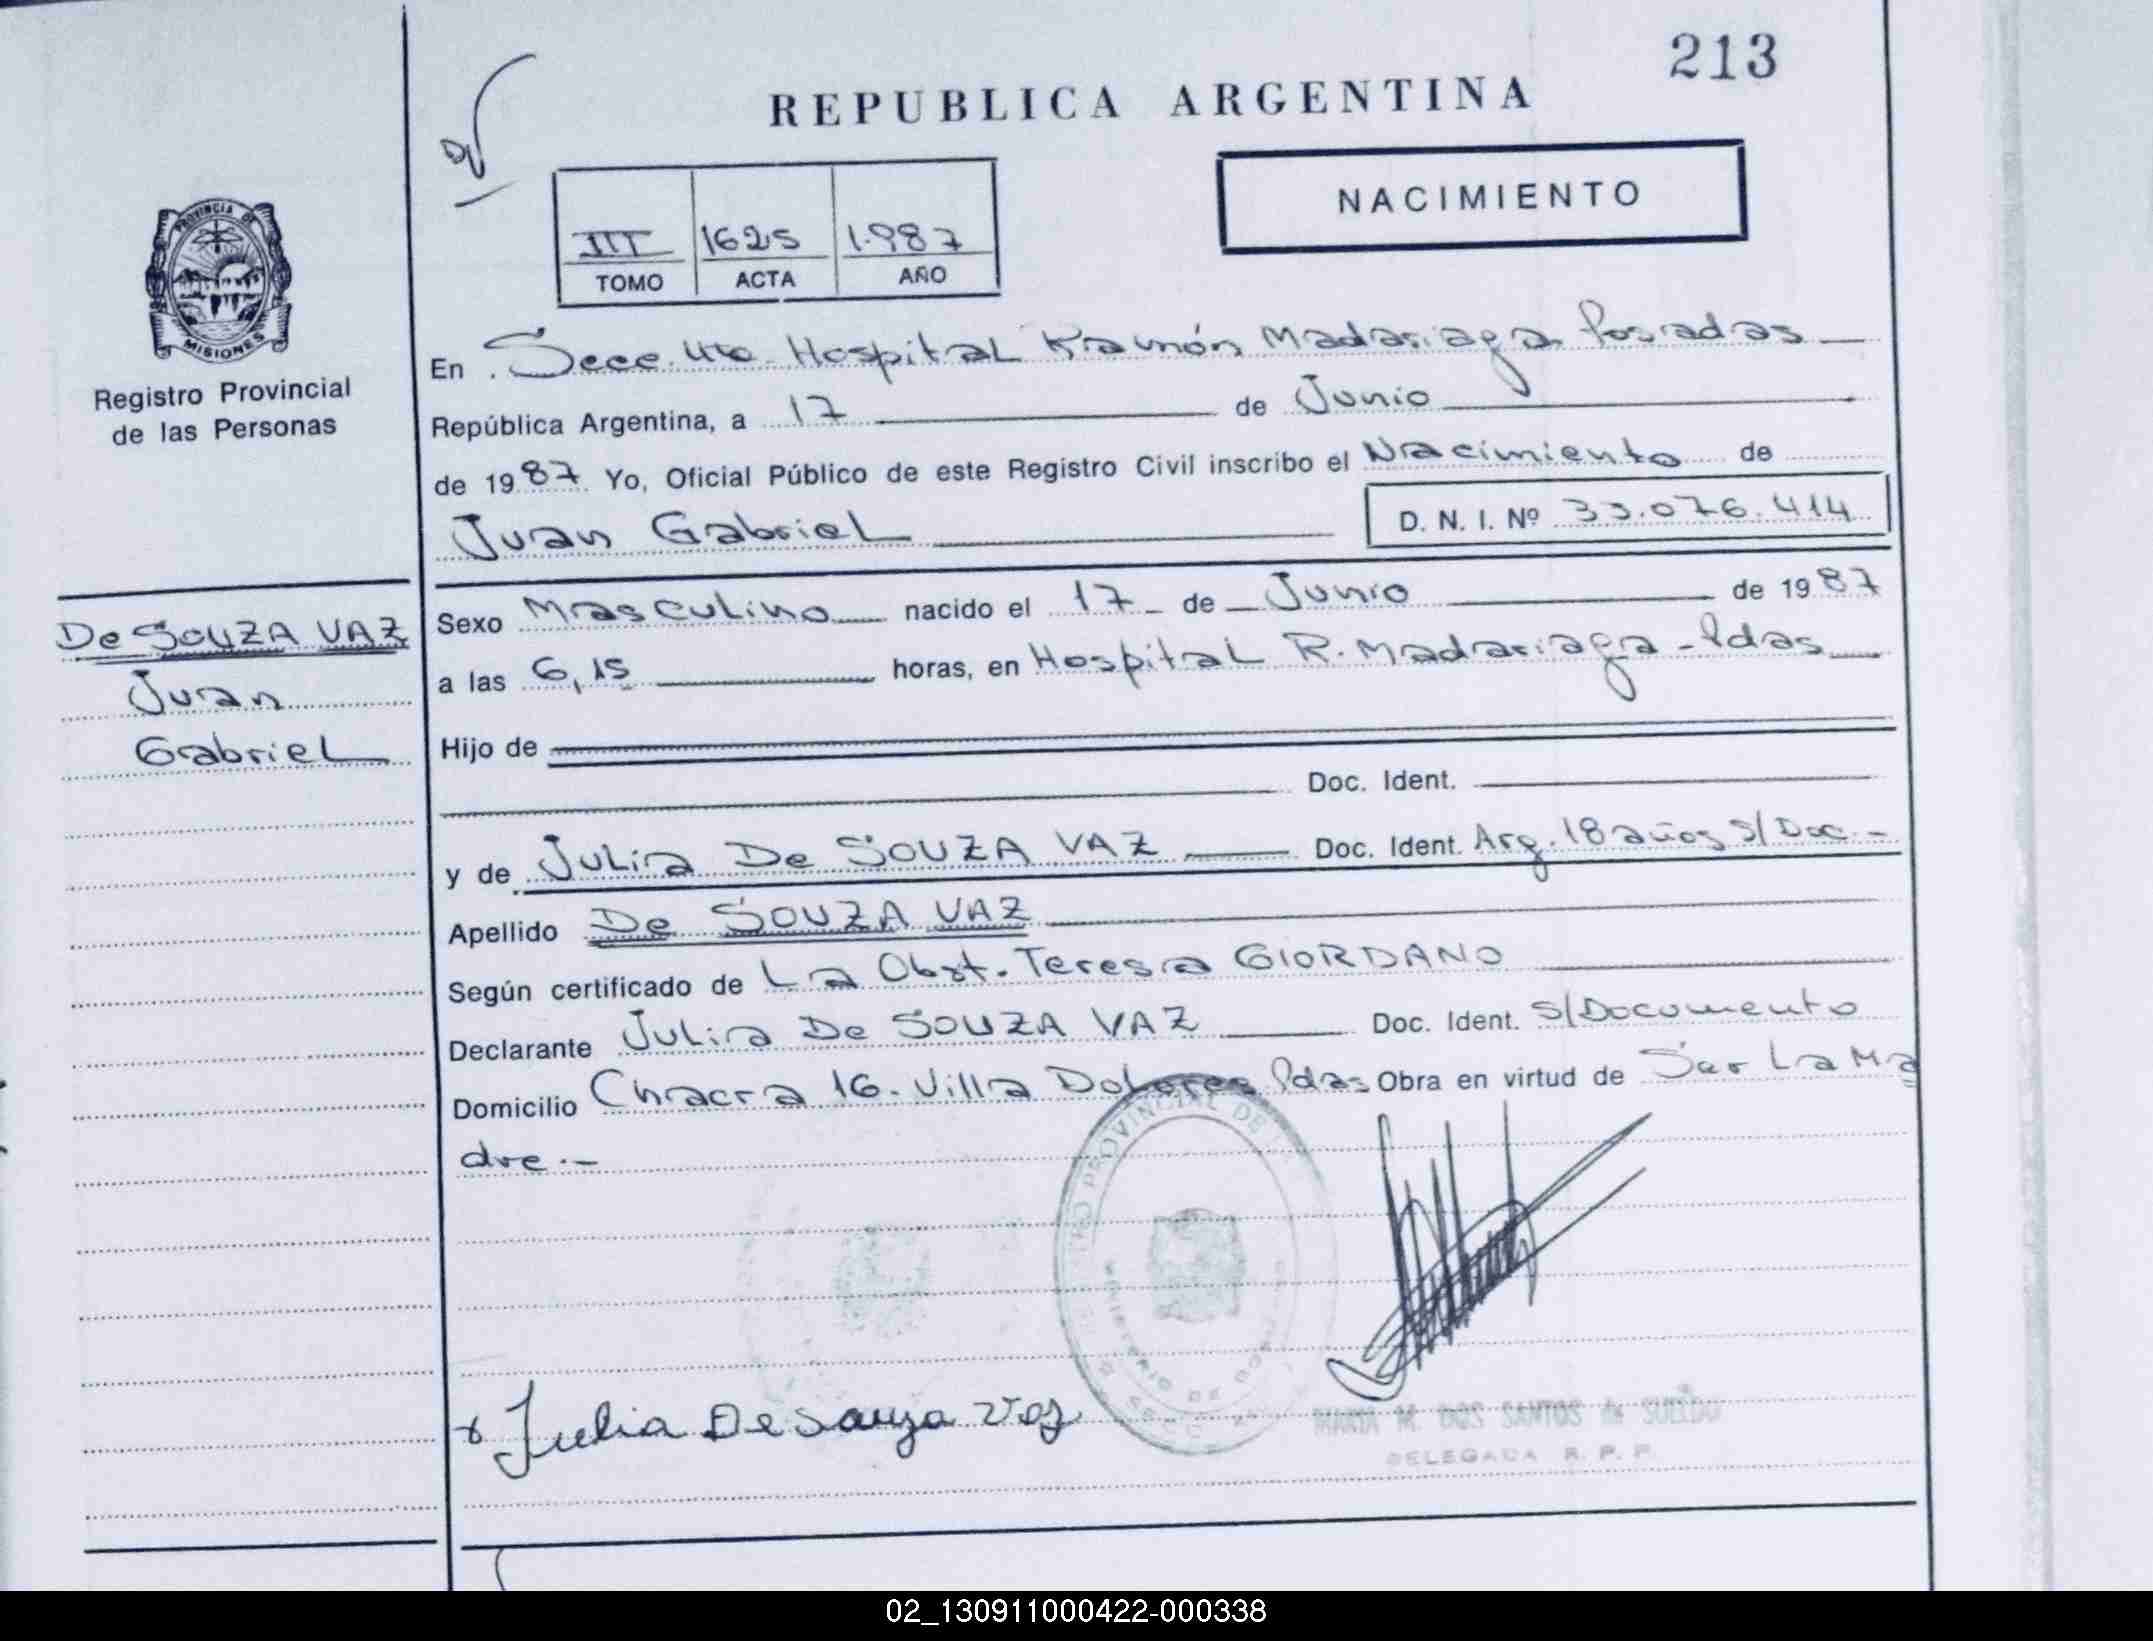 213
REPUBLICA ARGENTINA
NACIMIENTO
III 1625 1.987
TOMO ACTA AÑO
PROVINCIA DE
MISIONES
Registro Provincial
de las Personas
En Secc. Hospital Ramón Madariaga Posadas
República Argentina, a 17 de Junio
de 1987 Yo, Oficial Público de este Registro Civil inscribo el Nacimiento de
Juan Gabriel D. N. I. Nº 33.076.414
De SOUZA VAZ
Juan
Gabriel
Sexo Masculino nacido el 17 de Junio de 1987
a las 6,15 horas, en Hospital R. Madariaga - Pdas
Hijo de
Doc. Ident.
y de Julia De SOUZA VAZ Doc. Ident. Arg. 18 años S/Doc.-
Apellido De SOUZA VAZ
Según certificado de La Obst. Teresa GIORDANO
Declarante Julia De SOUZA VAZ Doc. Ident. S/Documento
Domicilio Chacra 16. Villa Dolores Pdas Obra en virtud de Ser La Ma
dre.-
PROVINCIAL DE
MINISTERIO DE
Julia De Souza Vaz
MARIA M. DOS SANTOS de
DELEGADA R. P. P.
02_130911000422-000338